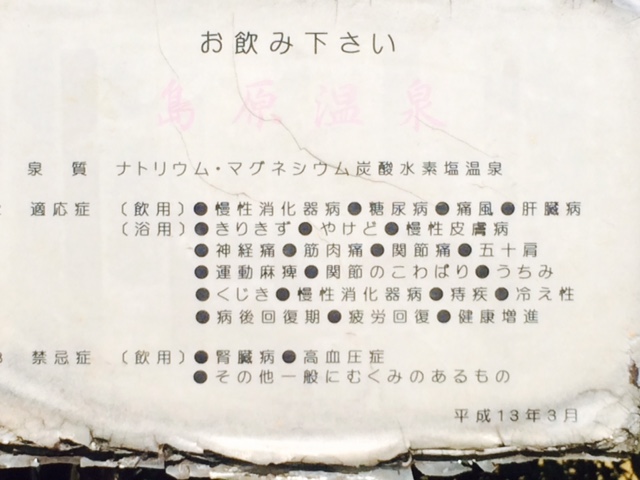 お飲み下さい
島原温泉
泉質 ナトリウム・マグネシウム炭酸水素塩温泉
適応症 (飲用) ●慢性消化器病●糖尿病●痛風●肝臓病
(浴用) ●きりきず●やけど●慢性皮膚病
●神経痛●筋肉痛●関節痛●五十肩
●運動麻痺●関節のこわばり●うちみ
●くじき●慢性消化器病●痔疾●冷え性
●病後回復期●疲労回復●健康増進
禁忌症 (飲用) ●腎臓病●高血圧症
●その他一般にむくみのあるもの
平成13年3月